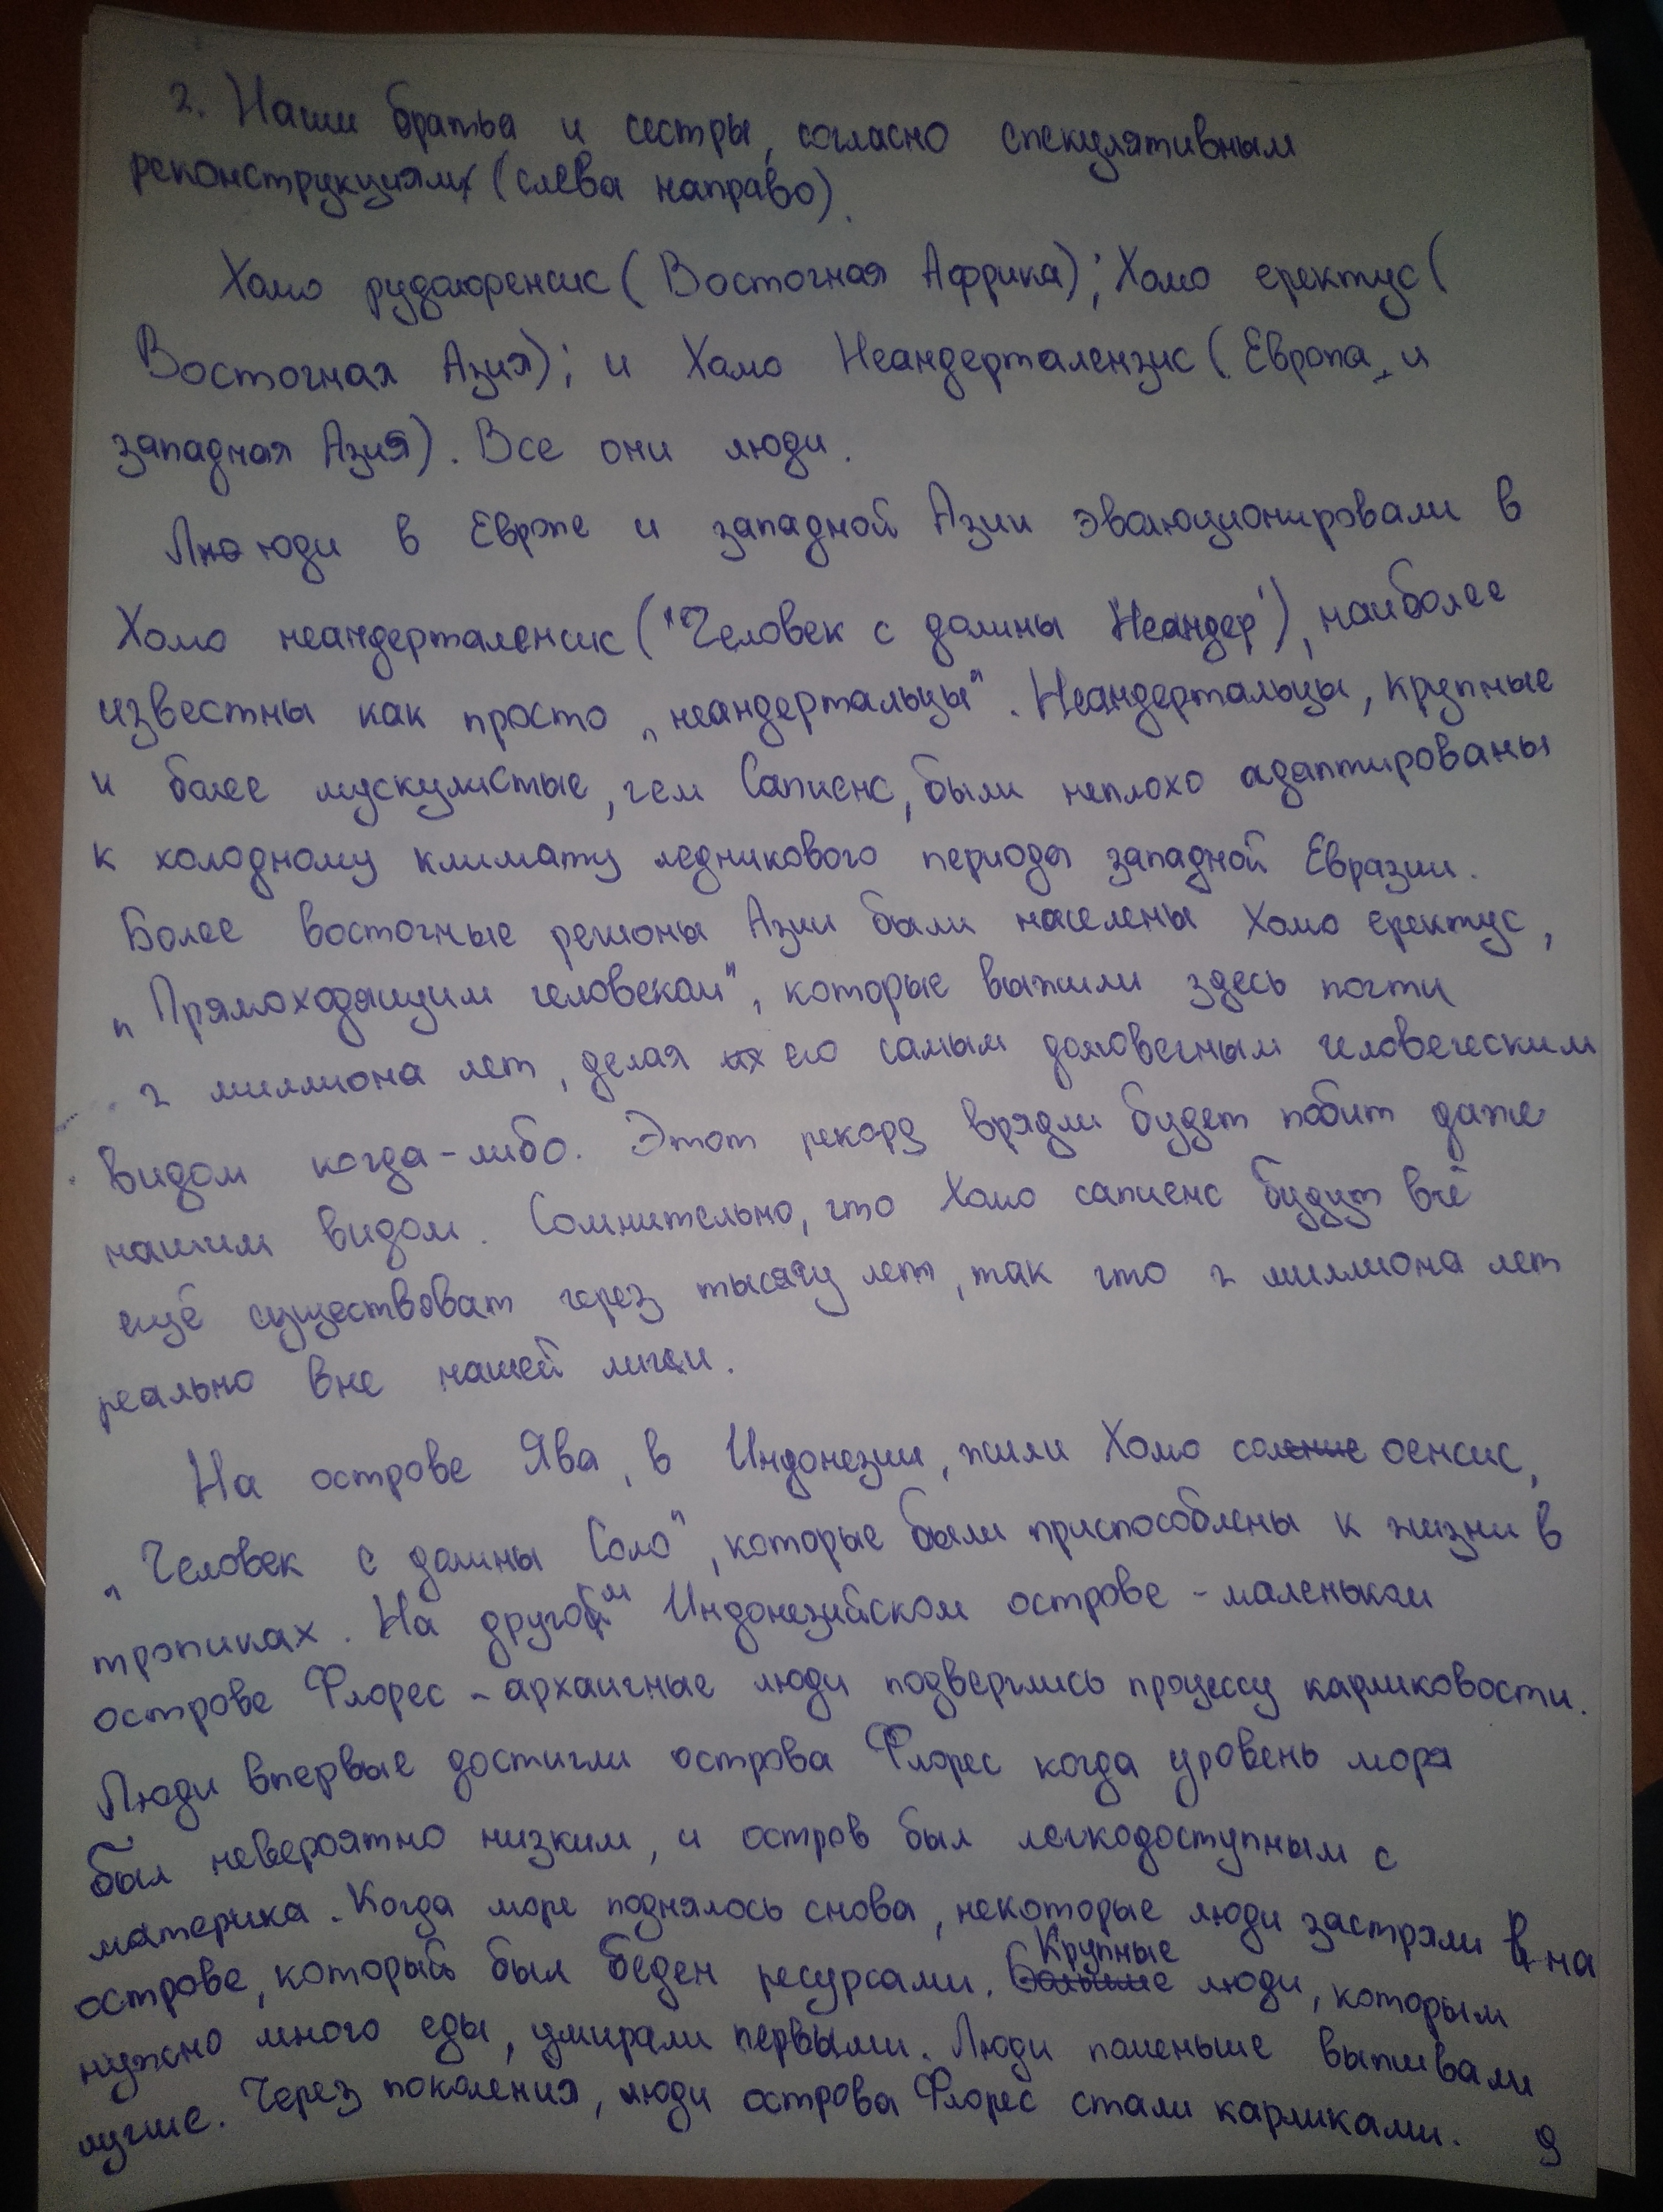 2. Наши братья и сестры, согласно спекулятивным
реконструкциям (слева направо).
Хомо рудолфенсис (Восточная Африка); Хомо еректус (
Восточная Азия); и Хомо Неандерталензис (Европа и
западная Азия). Все они люди.
Люди в Европе и западной Азии эволюционировали в
Хомо неандерталенсис ("Человек с долины Неандер"), наиболее
известны как просто „неандертальцы". Неандертальцы, крупные
и более мускулистые, чем Сапиенс, были неплохо адаптированы
к холодному климату ледникового периода западной Евразии.
Более восточные регионы Азии были населены Хомо еректус,
„Прямоходящим человеком", которые выжили здесь почти
2 миллиона лет, делая его самым долговечным человеческим
видом когда-либо. Этот рекорд врядли будет побит даже
нашим видом. Сомнительно, что Хомо сапиенс будут всё
ещё существоват через тысячу лет, так что 2 миллиона лет
реально вне нашей лиги.
На острове Ява, в Индонезии, жили Хомо солоенсис,
„Человек с долины Соло", которые были приспособлены к жизни в
тропиках. На другом Индонезийском острове - маленьком
острове Флорес - архаичные люди подверглись процессу карликовости.
Люди впервые достигли острова Флорес когда уровень моря
был невероятно низким, и остров был легкодоступным с
материка. Когда море поднялось снова, некоторые люди застряли на
острове, который был беден ресурсами. Крупные люди, которым
нужно много еды, умирали первыми. Люди поменьше выживали
лучше. Через поколения, люди острова Флорес стали карликами.
9